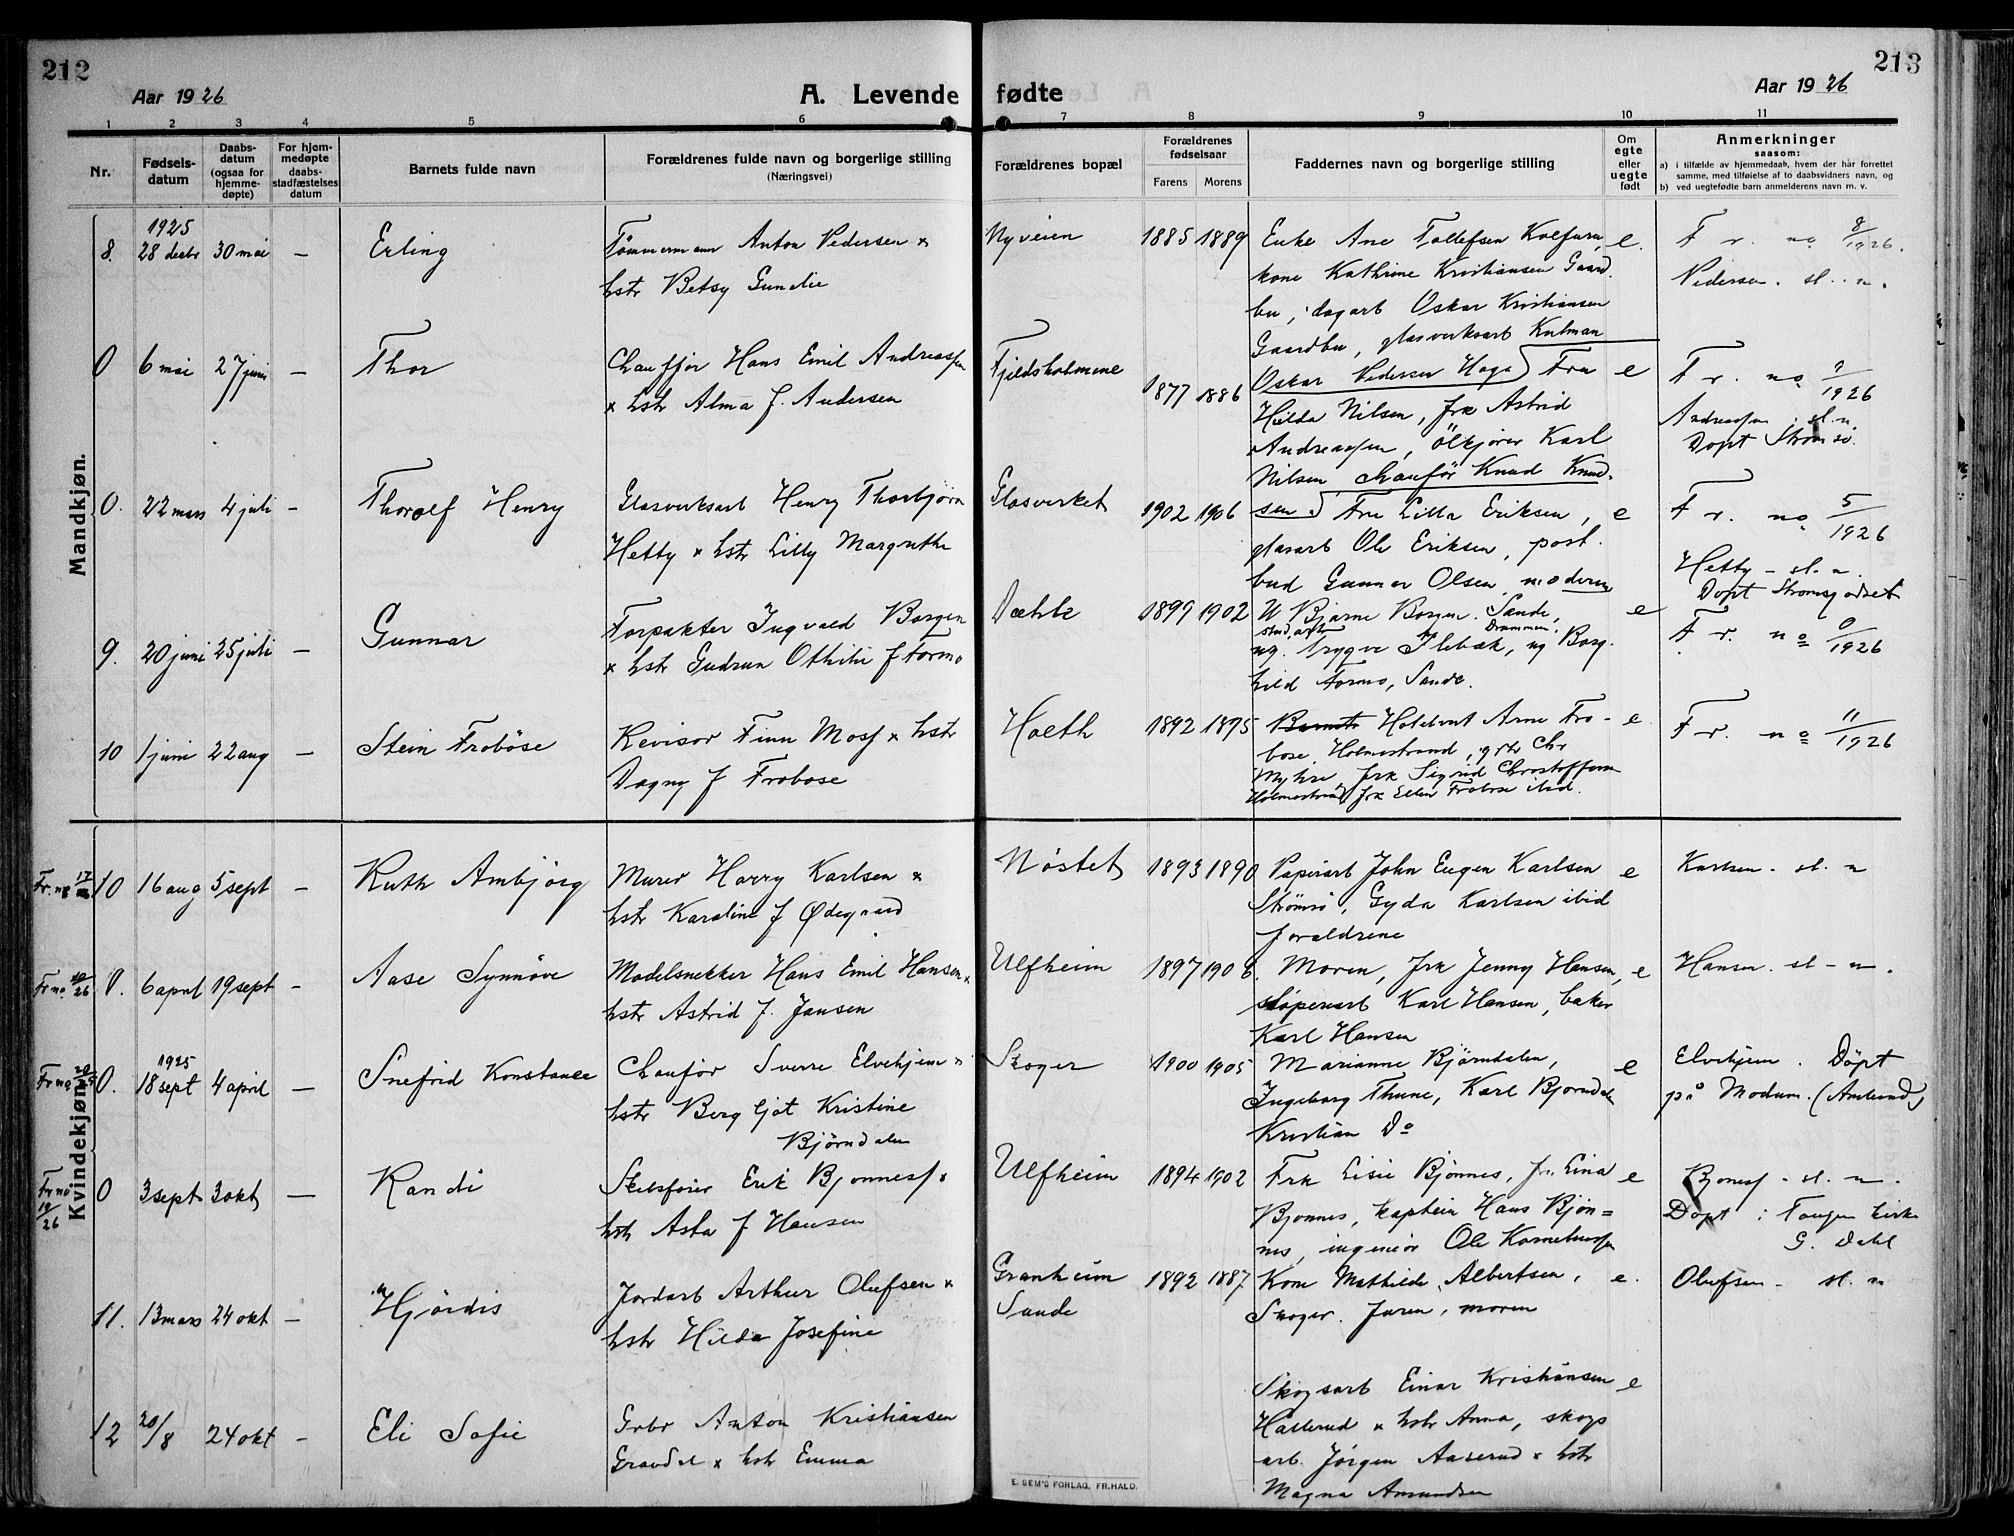 212
213
Aar 1926
A. Levende fødte
Aar 1926
1 2 3 4 5 6 7 8 9 10 11
Nr.
Fødsels-
datum
Daabs-
datum
(ogsaa for
hjemme-
døpte)
For hjem-
medøpte
daabs-
stadfæstelses
datum
Barnets fulde navn
Forældrenes fulde navn og borgerlige stilling
(Næringsvei)
Forældrenes bopæl
Forældrenes
fødselsaar
Farens Morens
Faddernes navn og borgerlige stilling
Om
egte
eller
uegte
født
Anmerkninger
saasom:
a) i tilfælde av hjemmedaab, hvem der har forrettet
samme, med tilføielse af to daabsvidners navn, og
b) ved uegtefødte barn anmelderens navn m. v.
Mandkjøn.
1925
8. 28 decbr 30 mai - Erling
Tømmermann Anton Pedersen x
hstr Betsy Gundie
Nyveien 1885 1889
Enke Ane Tollefsen Kolfuru, e.
kone Kathrine Kristiansen Gaard-
bu, dagarb Oskar Kristiansen
Gaardbu, glasverksarb Kulman
Oskar Pedersen Haga
F r. no 8/1926.
Pedersen. sl. n.
0 6 mai 27 juni - Thor
Chauffør Hans Emil Andreassen
x hstr Alma f. Andersen
Fjeldsholmene 1877 1886
Fru e
Hilda Nilsen, frk Astrid
Andreassen, Ølkjører Karl
Nilsen chauför Knud Knud-
sen
F r. no 9/1926
Andreassen sl. n.
Døpt Strømsø.
0. 22 mars 4 juli - Thorolf Henry
Glasverksarb Henry Thorbjørn
Hetty x hstr Lilly Margrethe
Glasverket 1902 1906
Fru Lilla Eriksen, e
glasarb Ole Eriksen, post-
bud Gunnar Olsen, moderen
F r. no 5/1926
Hetty - sl. n.
Døpt Strømsgodset
9. 20 juni 25 juli - Gunnar
Forpakter Ingvald Borgen
x hstr Gudrun Othilie f Formo
Dæhle 1899 1902
U Bjarne Borgen. Sande, e
stud.art Drammen.
ug. Trygve Ilebæk, ug Borg-
hild Formo, Sande.
F. r. no 0/1926
10 1 juni 22 aug - Stein Frobøse
Revisor Finn Moss x hstr
Dagny f Frobøse
Holth 1892 1895
Hotelvert Arne Fro- e
bøse Holmestrand, grk Chr
Myhre, frk Sigrid Christoffersen
Holmestrand, frk Ellen Frobøse ibid.
F r. no 11/1926
Kvindekjøn.
Fr. no 17 10 16 aug 5 sept - Ruth Ambjörg
Murer Harry Karlsen x
hstr Karoline f Ødegaard
Nøstet 1893 1890
Papirarb John Eugen Karlsen e
Strømsø, Gyda Karlsen ibid
foreldrene
Karlsen. sl. n
Fr no 10/26 0. 6 april 19 sept - Aase Synnöve
Modelsnekker Hans Emil Hansen x
hstr Astrid f. Jansen
Ulfheim 1897 1906.
Moren, frk Jenny Hansen, e
støperiarb Karl Hansen, baker
Karl Hansen
Hansen. sl - n.
1925
Fr no 0. 18 sept 4 april - Snefrid Konstance
Chauför Sverre Elvehjem x
hstr Bergljot Kristine
Björndalen
Skoger 1900 1905
Marianne Björndalen, e
Ingeborg Thune, Karl Bjørndalen
Kristian Do
Elvehjem. Döpt
på Modum. (Amlund)
Fr no 19/26 0 3 sept 3 okt - Randi
Skibsfører Erik Bjønness x
hstr Asta f Hansen
Ulfheim 1894 1902
Frk Lisie Bjönnes, fr. Lina e
Bjønnes, kaptein Hans Bjøn=
nes, ingeniør Ole Korneliussen
Bjønness - sl. n.
Døpt i Tangen kirke
G. Dahl
11. 13 mars 24 okt - Hjördis
Jordarb Arthur Olufsen x
hstr Hilda Josefine
Granheim
Sande
1892 1887
Kone Mathilde Albertsen, e.
Skoger. faren, moren
Olufsen - sl. n
12 20/8 24 okt - Eli Sofie
Grbr Anton Kristiansen
Gravdal x hstr Emma
Skogsarb Einar Kristiansen e
Hallerud x hstr Anna, skogs
arb. Jørgen Aaserud x hstr
Magna Amundsen
E. SEM'S FORLAG, FR.HALD.